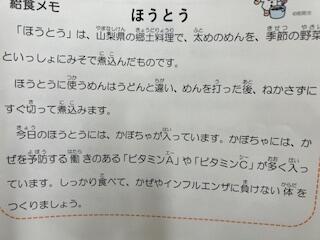 給食メモ
ほうとう
「ほうとう」は、山梨県の郷土料理で、太めのめんを、季節の野菜
といっしょにみそで煮込んだものです。
ほうとうに使うめんはうどんと違い、めんを打った後、ねかさずに
すぐ切って煮込みます。
今日のほうとうには、かぼちゃが入っています。かぼちゃには、か
ぜを予防する働きのある「ビタミンA」や「ビタミンC」が多く入っ
ています。しっかり食べて、かぜやインフルエンザに負けない体を
つくりましょう。